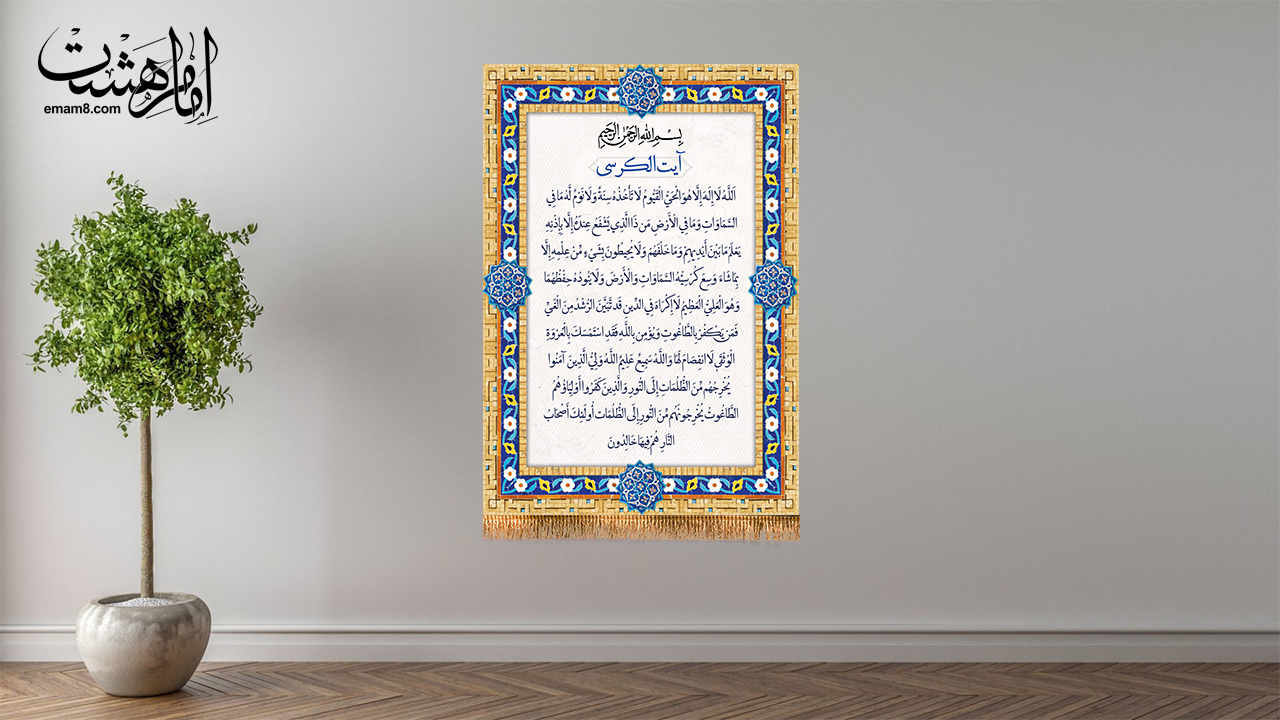 امام هشت
emam8.com
بِسْمِ اللهِ الرَّحْمٰنِ الرَّحِيمِ
آیت الکرسی
اَللَّهُ لَا إِلَهَ إِلَّا هُوَ الْحَيُّ الْقَيُّومُ لَا تَأْخُذُهُ سِنَةٌ وَلَا نَوْمٌ لَهُ مَا فِي
السَّمَاوَاتِ وَمَا فِي الْأَرْضِ مَن ذَا الَّذِي يَشْفَعُ عِندَهُ إِلَّا بِإِذْنِهِ
يَعْلَمُ مَا بَيْنَ أَيْدِيهِمْ وَمَا خَلْفَهُمْ وَلَا يُحِيطُونَ بِشَيْءٍ مِّنْ عِلْمِهِ إِلَّا
بِمَا شَاءَ وَسِعَ كُرْسِيُّهُ السَّمَاوَاتِ وَالْأَرْضَ وَلَا يَئُودُهُ حِفْظُهُمَا
وَهُوَ الْعَلِيُّ الْعَظِيمُ لَا إِكْرَاهَ فِي الدِّينِ قَد تَّبَيَّنَ الرُّشْدُ مِنَ الْغَيِّ
فَمَن يَكْفُرْ بِالطَّاغُوتِ وَيُؤْمِن بِاللَّهِ فَقَدِ اسْتَمْسَكَ بِالْعُرْوَةِ
الْوُثْقَىٰ لَا انفِصَامَ لَهَا وَاللَّهُ سَمِيعٌ عَلِيمٌ اللَّهُ وَلِيُّ الَّذِينَ آمَنُوا
يُخْرِجُهُم مِّنَ الظُّلُمَاتِ إِلَى النُّورِ وَالَّذِينَ كَفَرُوا أَوْلِيَاؤُهُمُ
الطَّاغُوتُ يُخْرِجُونَهُم مِّنَ النُّورِ إِلَى الظُّلُمَاتِ أُولَئِكَ أَصْحَابُ
النَّارِ هُمْ فِيهَا خَالِدُونَ